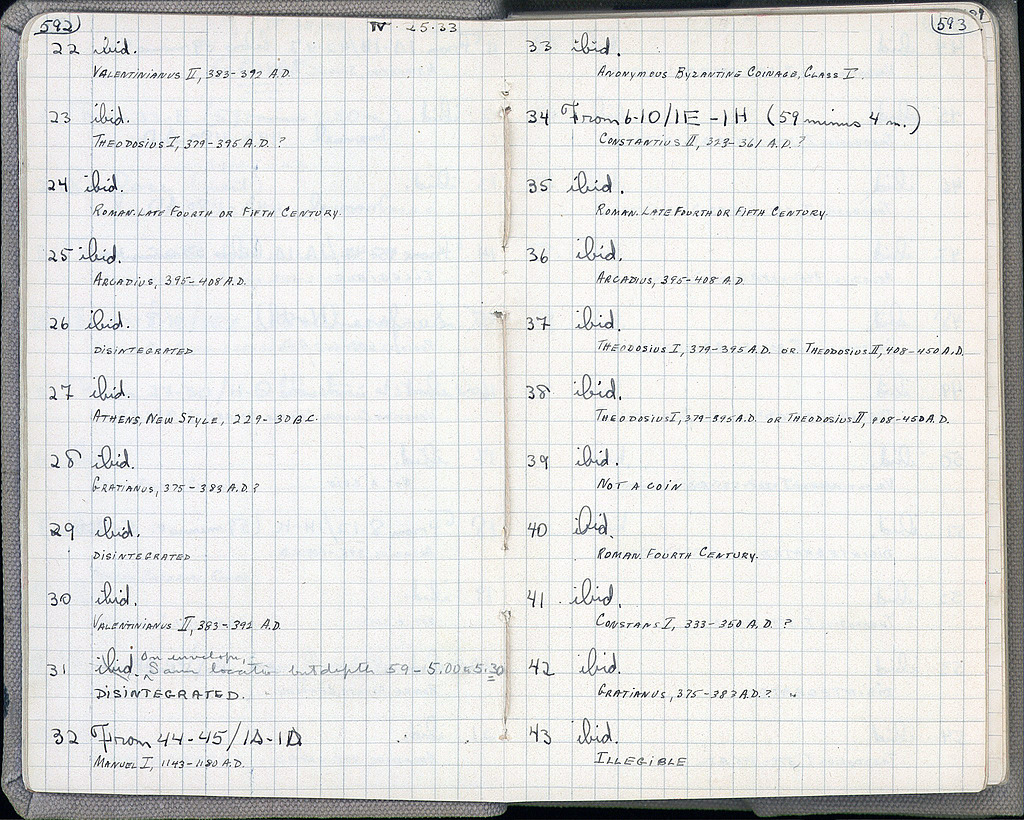 592
IV · 25·33
22 ibid.
VALENTINIANUS II, 383-392 A.D.
23 ibid.
THEODOSIUS I, 379-395 A.D. ?
24 ibid.
ROMAN. LATE FOURTH OR FIFTH CENTURY.
25 ibid.
ARCADIUS, 395-408 A.D.
26 ibid.
DISINTEGRATED
27 ibid.
ATHENS, NEW STYLE, 229-30 B.C.
28 ibid.
GRATIANUS, 375-383 A.D. ?
29 ibid.
DISINTEGRATED
30 ibid.
VALENTINIANUS II, 383-392 A.D.
On envelope,
31 ibid. Same location but depth 59 - 5.00 5.30
DISINTEGRATED.
32 From 44-45/1Δ-1D
MANUEL I, 1143-1180 A.D.
593
33 ibid.
ANONYMOUS BYZANTINE COINAGE, CLASS I.
34 From 6-10/1E-1H (59 minus 4 m.)
CONSTANTIUS II, 323-361 A.D. ?
35 ibid.
ROMAN. LATE FOURTH OR FIFTH CENTURY.
36 ibid.
ARCADIUS, 395-408 A.D.
37 ibid.
THEODOSIUS I, 379-395 A.D. OR THEODOSIUS II, 408-450 A.D.
38 ibid.
THEODOSIUS I, 379-395 A.D. OR THEODOSIUS II, 408-450 A.D.
39 ibid.
NOT A COIN
40 ibid.
ROMAN. FOURTH CENTURY.
41 ibid.
CONSTANS I, 333-350 A.D. ?
42 ibid.
GRATIANUS, 375-383 A.D. ?
43 ibid.
ILLEGIBLE